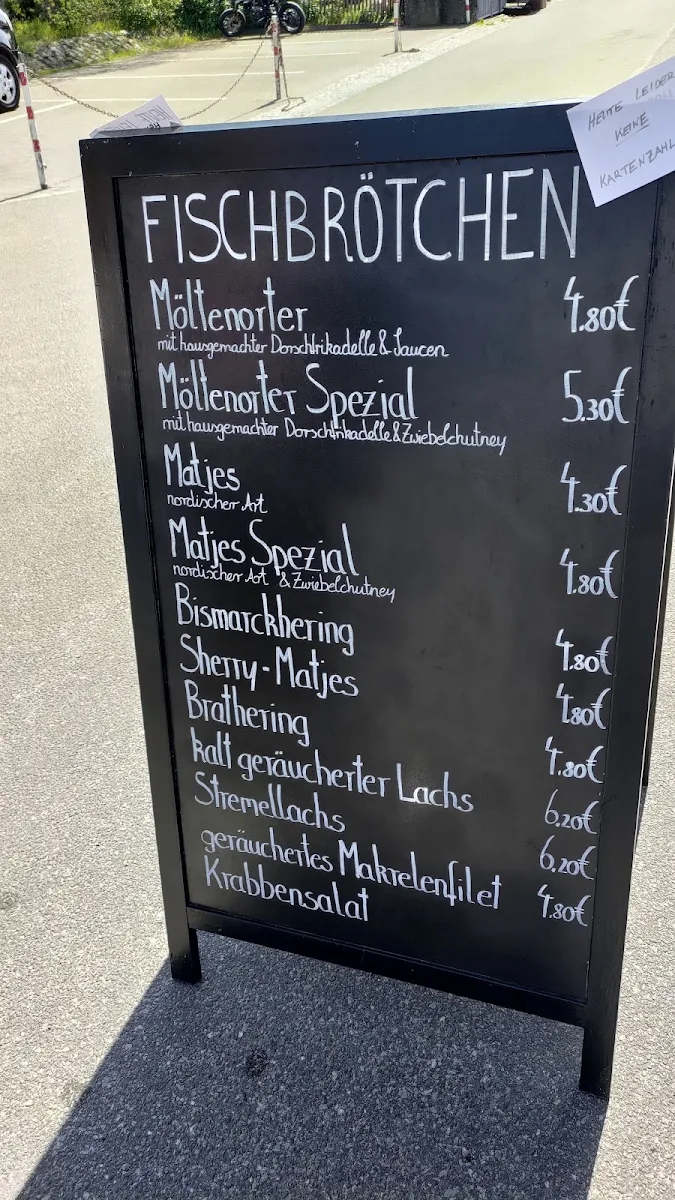 HEUTE LEIDER
KEINE
KARTENZAHL
FISCHBRÖTCHEN
Möltenorter 4.80€
mit hausgemachter Dorschfrikadelle & Saucen
Möltenorter Spezial 5.30€
mit hausgemachter Dorschfrikadelle & Zwiebelchutney
Matjes 4.30€
nordischer Art
Matjes Spezial 4.80€
nordischer Art & Zwiebelchutney
Bismarckhering 4.80€
Sherry-Matjes 4.80€
Brathering 4.80€
kalt geräucherter Lachs 6.20€
Stremellachs 6.20€
geräuchertes Makrelenfilet 4.80€
Krabbensalat